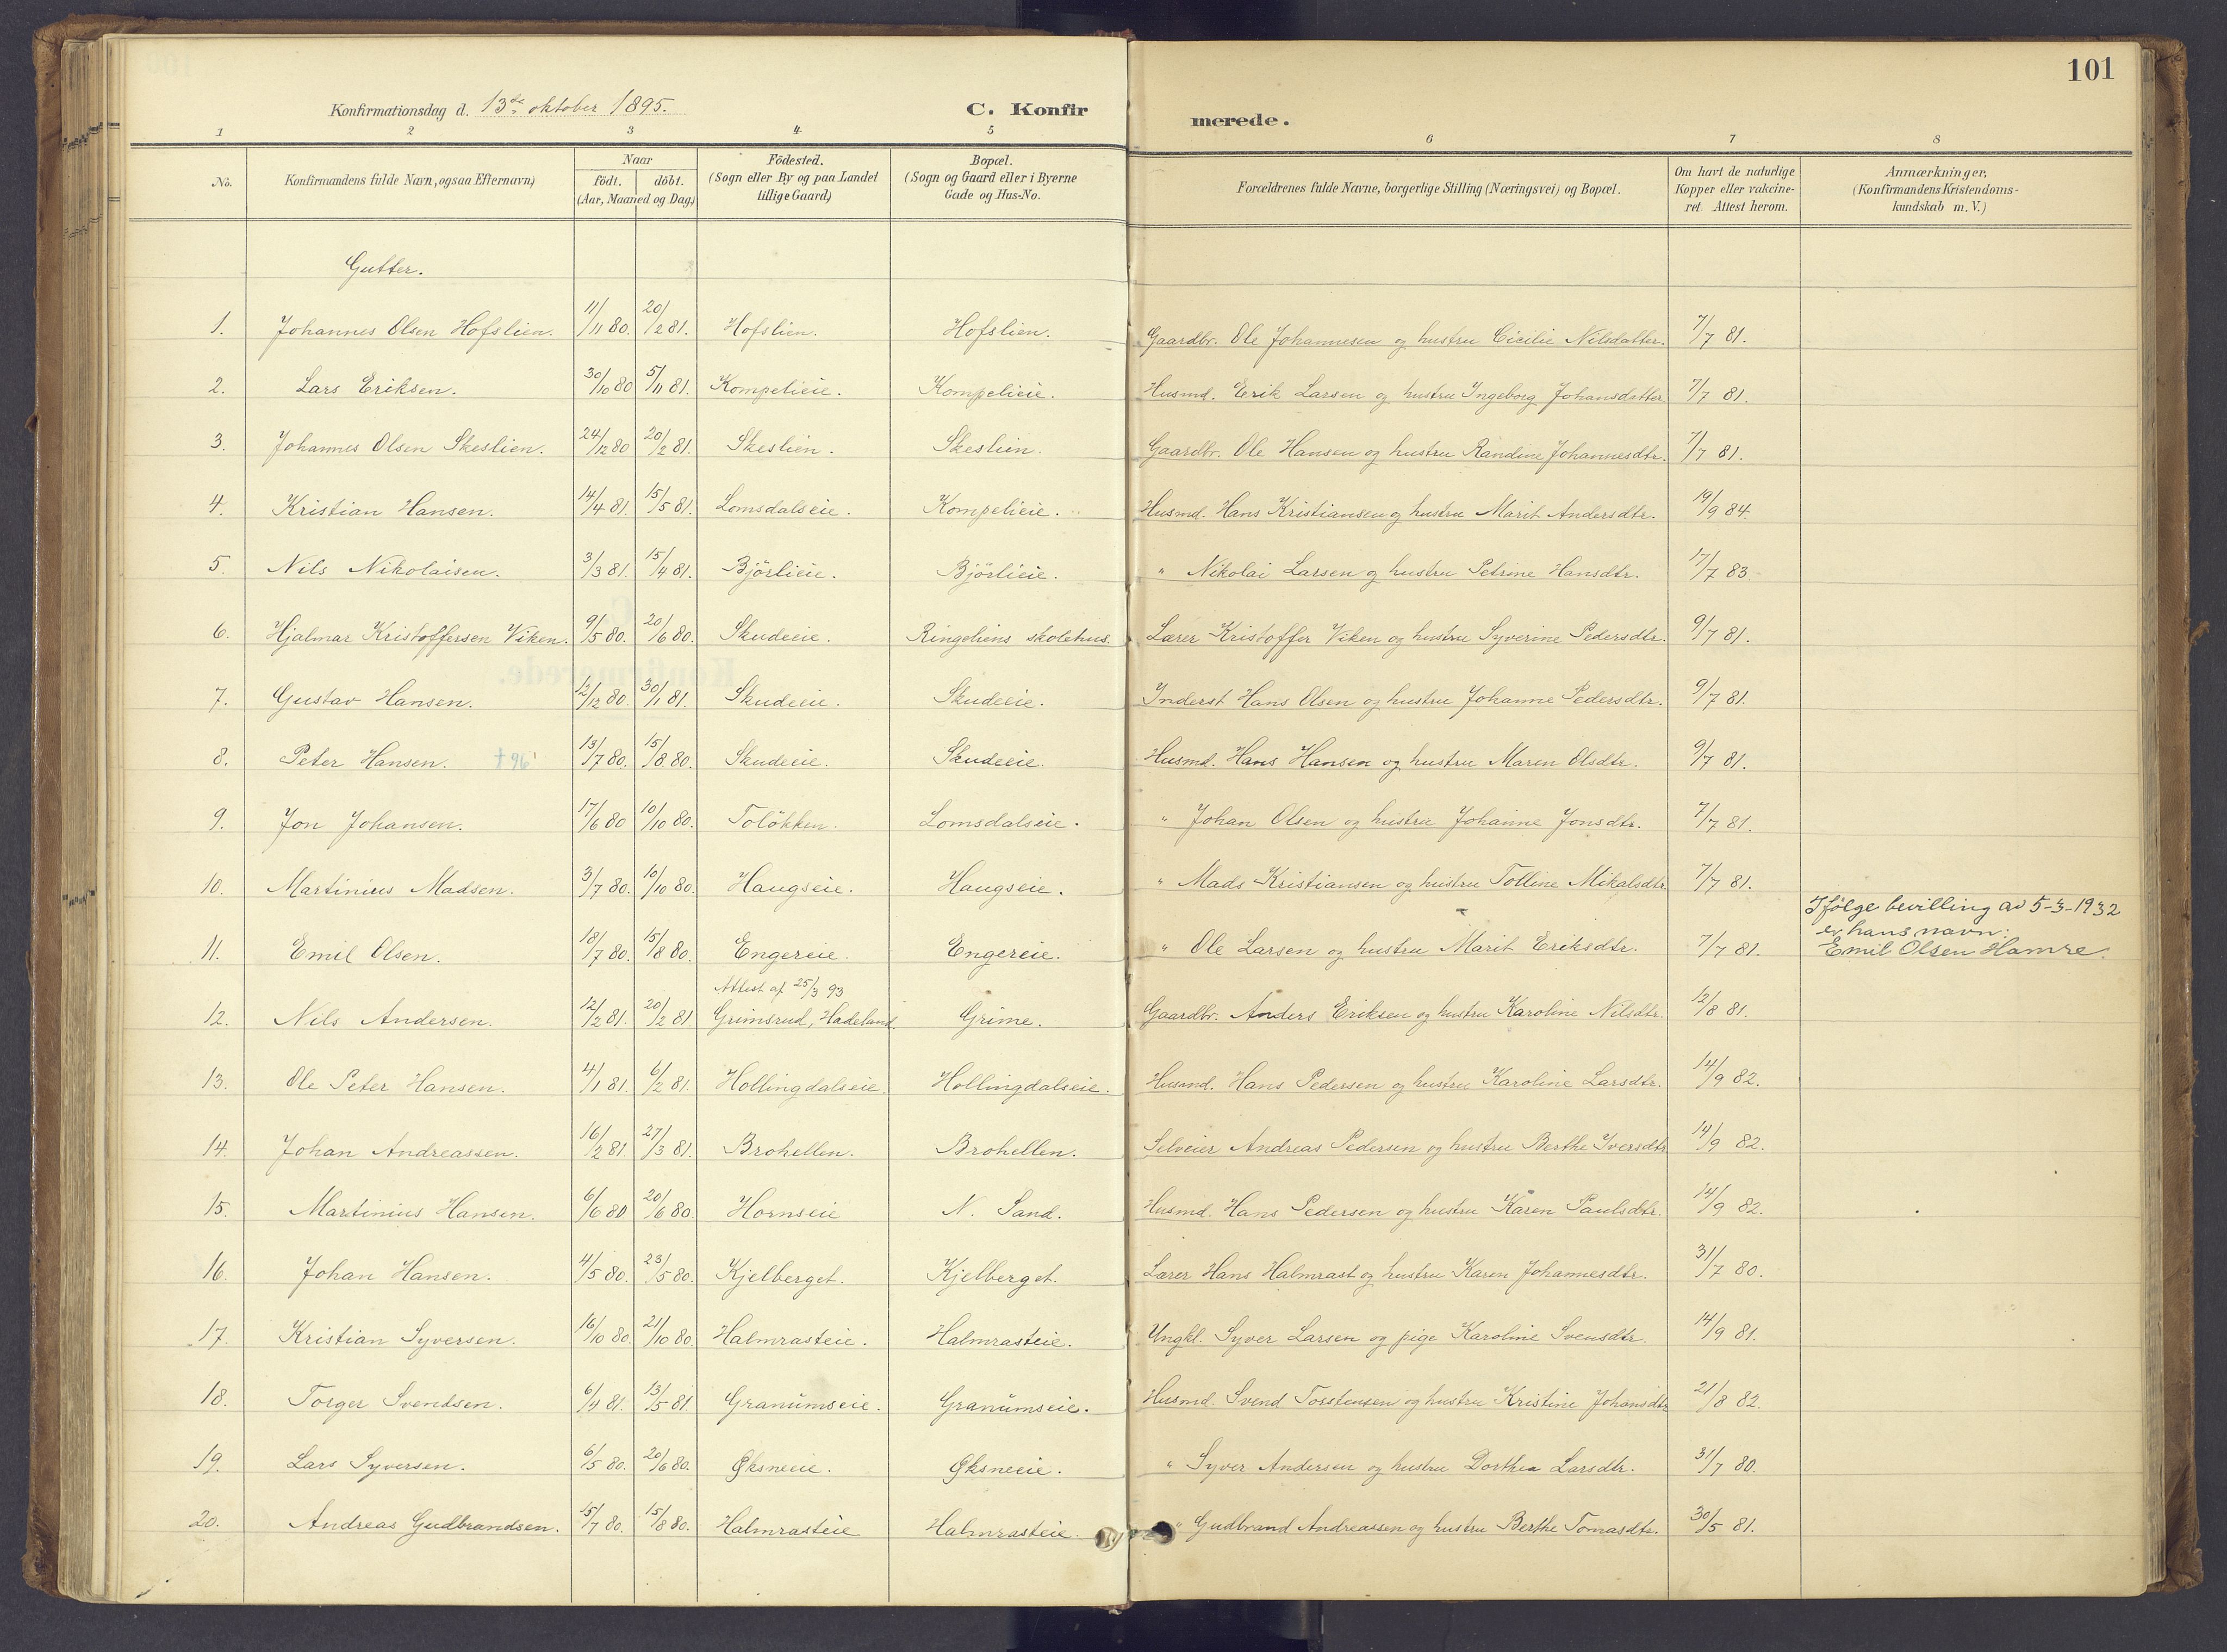 101
Konfirmationsdag d. 13de oktober 1895.
C. Konfirmerede.
1 2 3 4 5 6 7 8
No. Konfirmandens fulde Navn, ogsaa Efternavn) Naar födt. döbt. (Aar, Maaned og Dag) Födested. (Sogn eller By og paa Landet tillige Gaard) Bopæl. (Sogn og Gaard eller i Byerne Gade og Hus-No. Forældrenes fulde Navne, borgerlige Stilling (Næringsvei) og Bopæl. Om havt de naturlige Kopper eller vakcineret. Attest herom. Anmærkninger, (Konfirmandens Kristendomskundskab m. V.)
Gutter.
1. Johannes Olsen Hofslien. 11/11 80. 20/2 81. Hofslien. Hofslien. Gaardbr. Ole Johannesen og hustru Cicilie Nilsdatter. 7/7 81.
2. Lars Eriksen. 30/10 80 5/11 81. Kompelieie. Kompelieie. Husmd. Erik Larsen og hustru Ingeborg Johansdatter 7/7 81.
3. Johannes Olsen Skeslien. 24/12 80 20/2 81. Skeslien. Skeslien. Gaardbr. Ole Hansen og hustru Randine Johannesdtr. 7/7 81.
4. Kristian Hansen. 14/4 81. 15/5 81. Lomsdalseie. Kompelieie. Husmd. Hans Kristiansen og hustru Marit Andersdtr. 19/9 84.
5. Nils Nikolaisen. 3/3 81. 15/4 81. Björlieie. Björlieie. " Nikolai Larsen og hustru Petrine Hansdtr. 17/7 83.
6. Hjalmar Kristoffersen Viken. 9/5 80. 20/6 80. Skudeeie. Ringeliens skolehus. Lærer Kristoffer Viken og hustru Syverine Pedersdtr. 9/7 81.
7. Gustav Hansen. 12/12 80. 30/1 81. Skudeeie. Skudeeie. Inderst Hans Olsen og hustru Johanne Pedersdtr. 9/7 81.
8. Peter Hansen. † 96' 13/7 80. 15/8 80. Skudeeie. Skudeeie. Husmd. Hans Hansen og hustru Maren Olsdtr. 9/7 81.
9. Jon Johansen. 17/6 80 10/10 80. Tolökken. Lomsdalseie. " Johan Olsen og hustru Johanne Jonsdtr. 7/7 81.
10. Martinius Madsen. 3/7 80. 10/10 80. Haugseie. Haugseie. " Mads Kristiansen og hustru Tolline Mikalsdtr. 7/7 81.
11. Emil Olsen. 18/7 80. 15/8 80. Engereie. Engereie. " Ole Larsen og hustru Marit Eriksdtr. 7/7 81. Ifölge bevilling av 5-3-1932
er hans navn:
Emil Olsen Hamre.
Attest af 25/3 93
12. Nils Andersen. 12/2 81. 20/2 81 Grimsrud, Hadeland. Grime. Gaardbr. Anders Eriksen og hustru Karoline Nilsdtr. 12/8 81.
13. Ole Peter Hansen. 4/1 81. 6/2 81. Hollingdalseie. Hollingdalseie. Husmd. Hans Pedersen og hustru Karoline Larsdtr. 14/9 82.
14. Johan Andreassen. 16/2 81. 27/3 81. Brohellen. Brohellen. Selveier Andreas Pedersen og hustru Berthe Iversdtr 14/9 82.
15. Martinius Hansen. 6/6 80 20/6 80. Hornseie N. Sand. Husmd. Hans Pedersen og hustru Karen Paulsdtr. 14/9 82.
16. Johan Hansen. 4/5 80. 23/5 80. Kjelberget. Kjelberget. Lærer Hans Halmrast og hustru Karen Johannesdtr. 31/7 80.
17. Kristian Syversen. 16/10 80. 21/10 80. Halmrasteie. Halmrasteie. Ungkl. Syver Larsen og pige Karoline Svensdtr. 14/9 81.
18. Torger Svendsen. 6/4 81. 13/5 81. Granumseie. Granumseie. Husmd. Svend Torstensen og hustru Kristine Johansdtr 21/8 82.
19. Lars Syversen. 6/5 80. 20/6 80. Øksneeie. Øksneeie. " Syver Andersen og hustru Dorthea Larsdtr. 31/7 80.
20. Andreas Gudbrandsen. 15/7 80. 15/8 80. Halmrasteie Halmrasteie. " Gudbrand Andreassen og hustru Berthe Tomasdtr. 30/5 81.